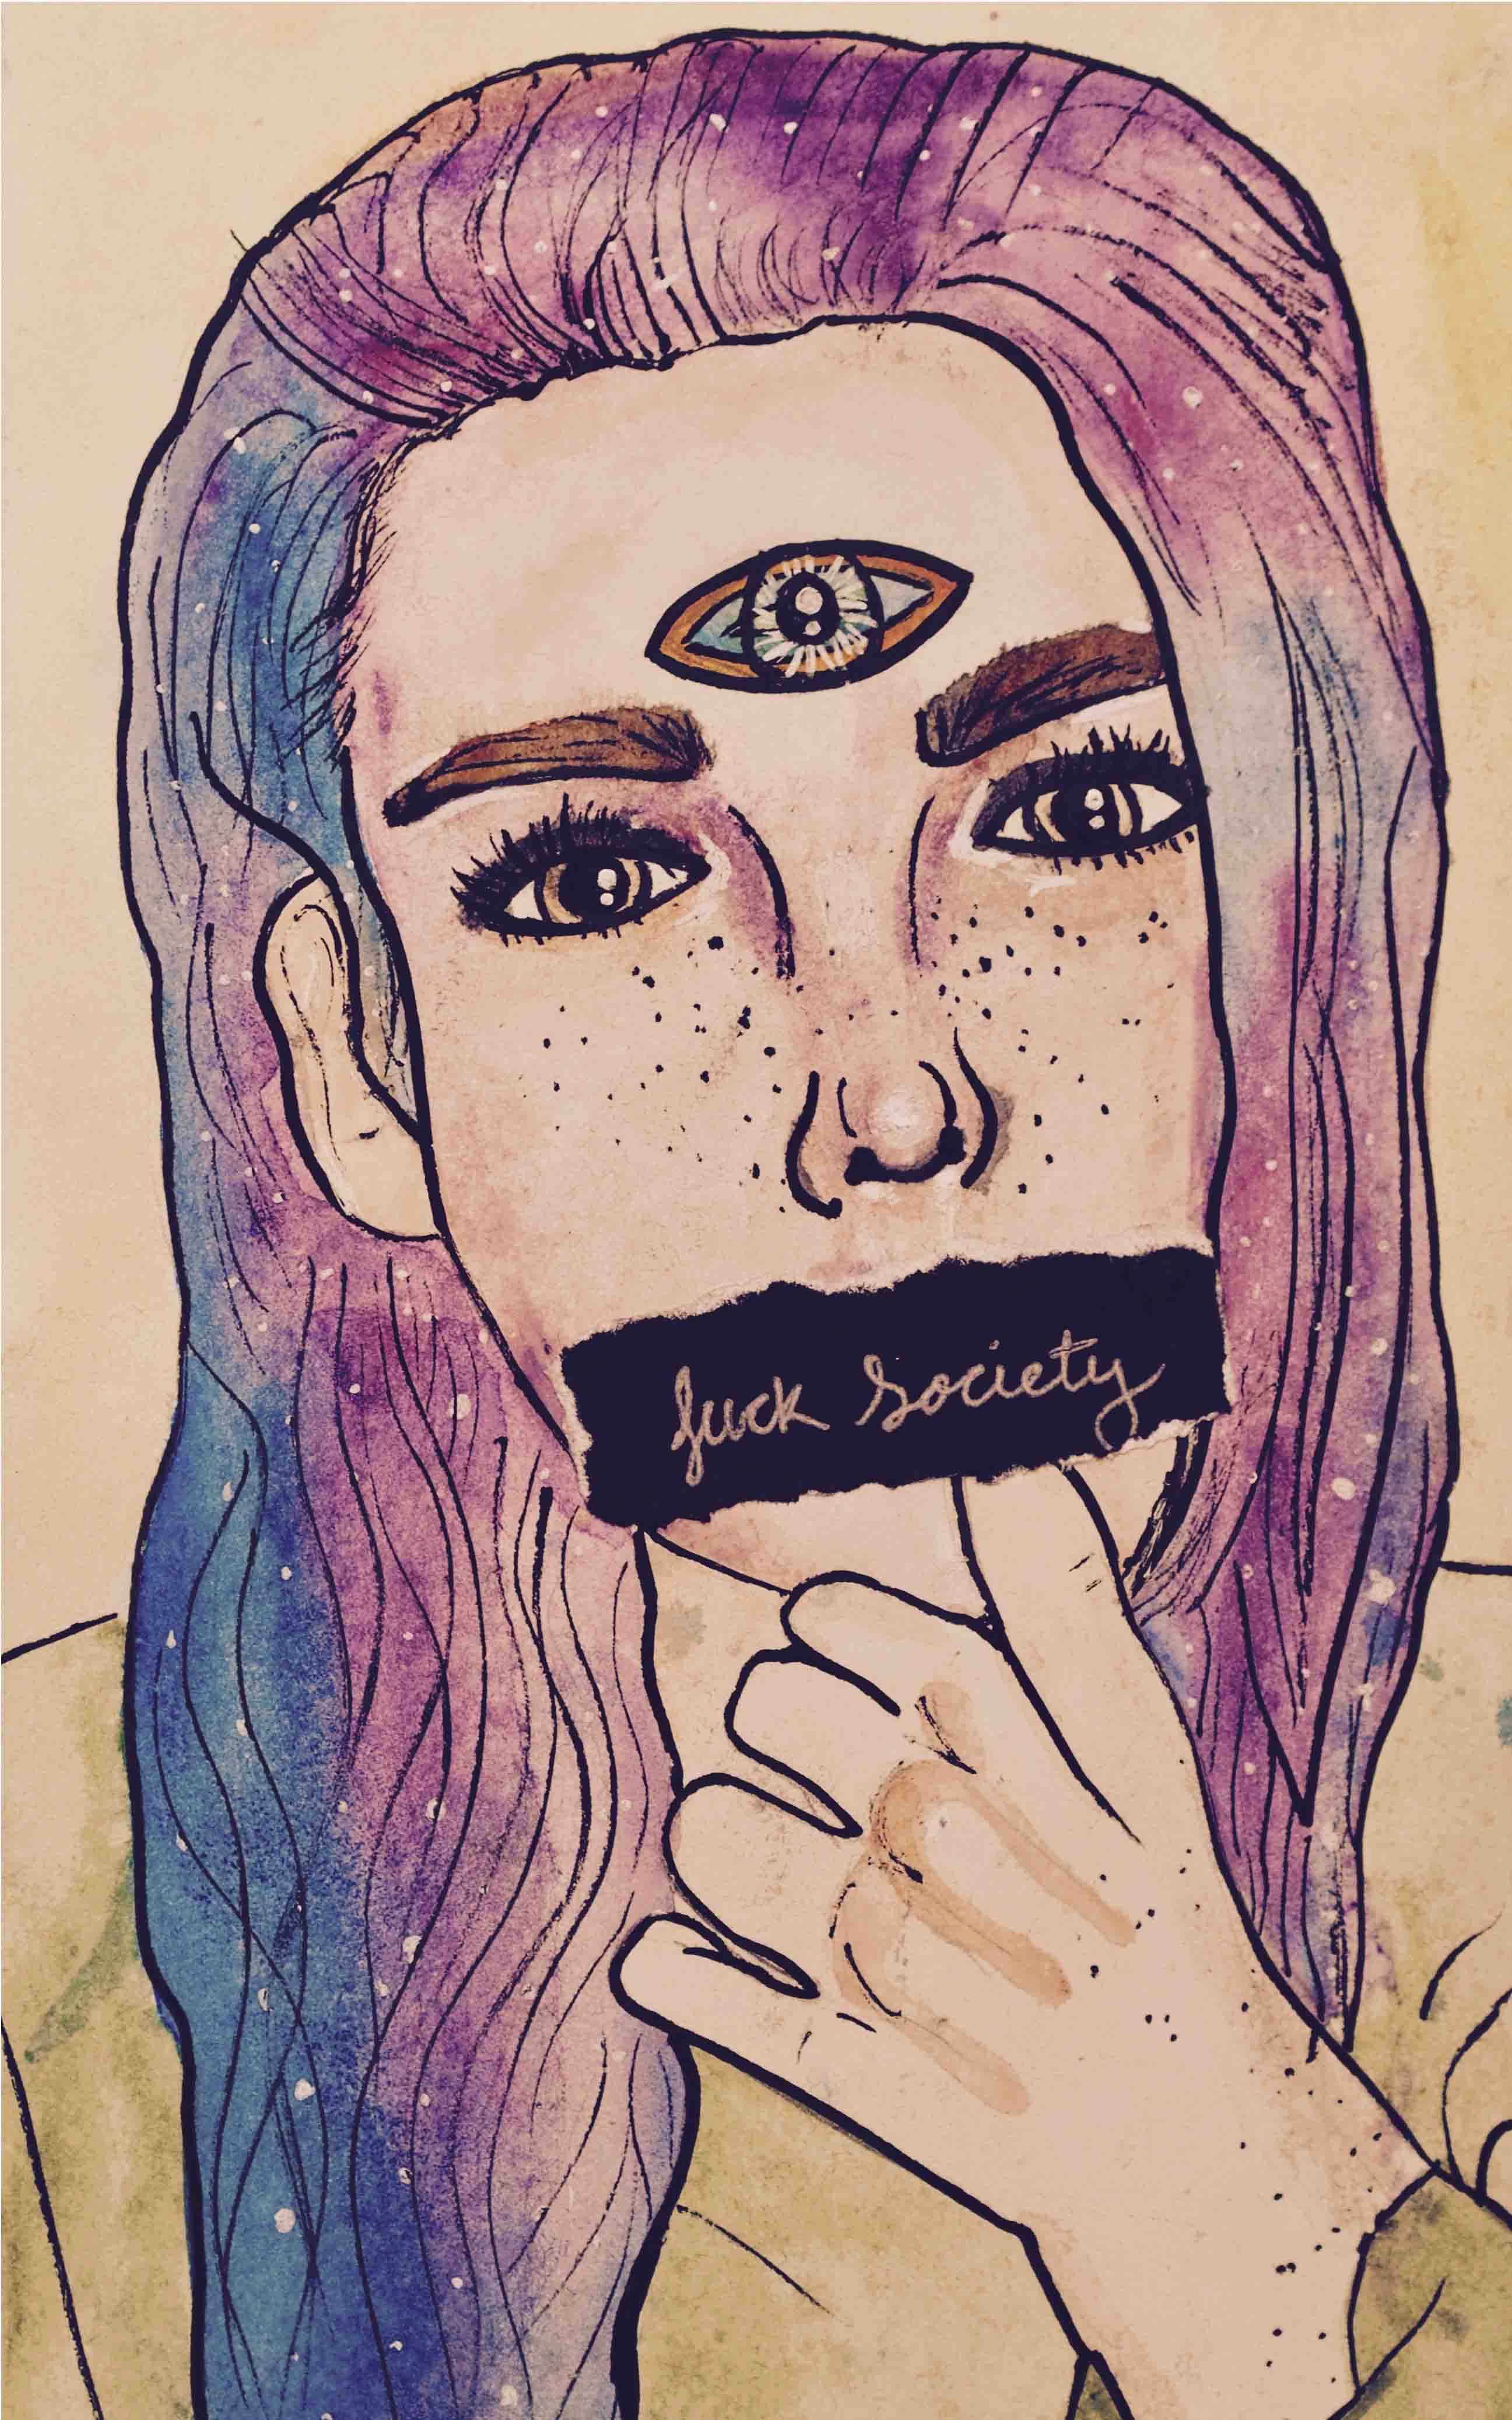 fuck Society